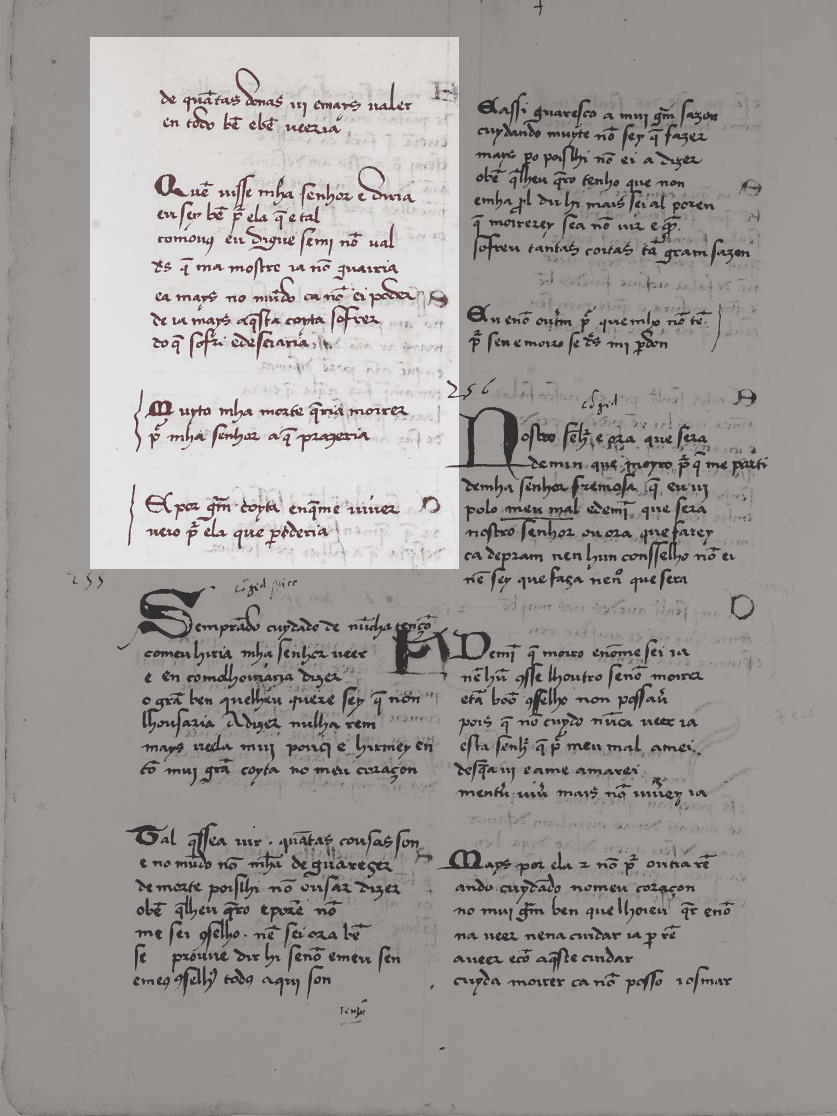 de quãtas donas ui emays ualer
en todo bẽ ebẽ ueeria
Quẽ uisse mha senhor e diria
eu sey bẽ p̃ ela q̃ e tal
comoug eu digue semi nõ ual
d̃s q̃ ma mostre ia nõ guairia
ea mays no mũdo ca nõ ei poder
de ia mays aq̃sta coyta sofrer
do q̃ sofri edeseiaria
Muyto mha morte q̃ria moirer
p̃ mha senhor a q̃ prazeria
El por grãm coyta enq̃me uiuer
ueio p̃ ela que poderia
255
Semprãdo cuydado de mũcha tençõ
comeu hiria mha senhor ueer
e en comolhouiraria dizer
o grã ben quelheu quere sey q̃ non
lhousaria Adizer nulha rem
mays ueela mui pouq̃ e hirmey en
cõ mui grã coyta no meu coraçon
Tal q̃ssea uir . quãtas cousas son
e no mũdo nõ mhã de guareçer
de morte poislhi nõ ousar dizer
obẽ q̃lheu q̃ro eporẽ nõ
me sei ꝯselho . nẽ sei ora bẽ
se prouue dir hi senõ emeu sen
emeꝯ ꝯselhã todꝯ aqui son
Eassi guaresco a mui grã sazon
cuydando muyte nõ sey q̃ fazer
mays po poislhi nõ ei a dizer
obẽ q̃lheu q̃ro tenho que non
emha prl dir hi mais sei al poren
q̃ moirerey
sofreu tantas coitas tã gram sazon
Eu enõ outrẽ p̃ que mho nõ tẽ
p̃ seu e moiro se d̃s mi pdon
256
Nostro señr e ora que sera
demin que moyro p̃ q̃ me parti
demha senhor fremosa q̃ eu ui
polo meu mal edemĩ que sera
nostro senhor ou ora que farey
ca depram nen hun consselho nõ ei
nẽ sey que faça nen que sera
Demĩ q̃ moiro enõme sei ia
nẽ hũ ꝯsse lhoutro senõ moirer
etã boõ ꝯsselho non possau
pois q̃ nõ cuydo nũca ueer ia
esta senhr q̃ p̃ meu mal amei
desq̃a ui e ame amarei
mentr uiu mais nõ uiuey ia
Mays por ela ꝛ nõ p̃ outra rẽ
ando cuydado nomeu coraçon
no mui grm ben que lhoieu qr enõ
na ueer nena cuidar ia p rẽ
aueer ecõ aq̃ste cuidar
cuyda moirer ca nõ posso iosmar